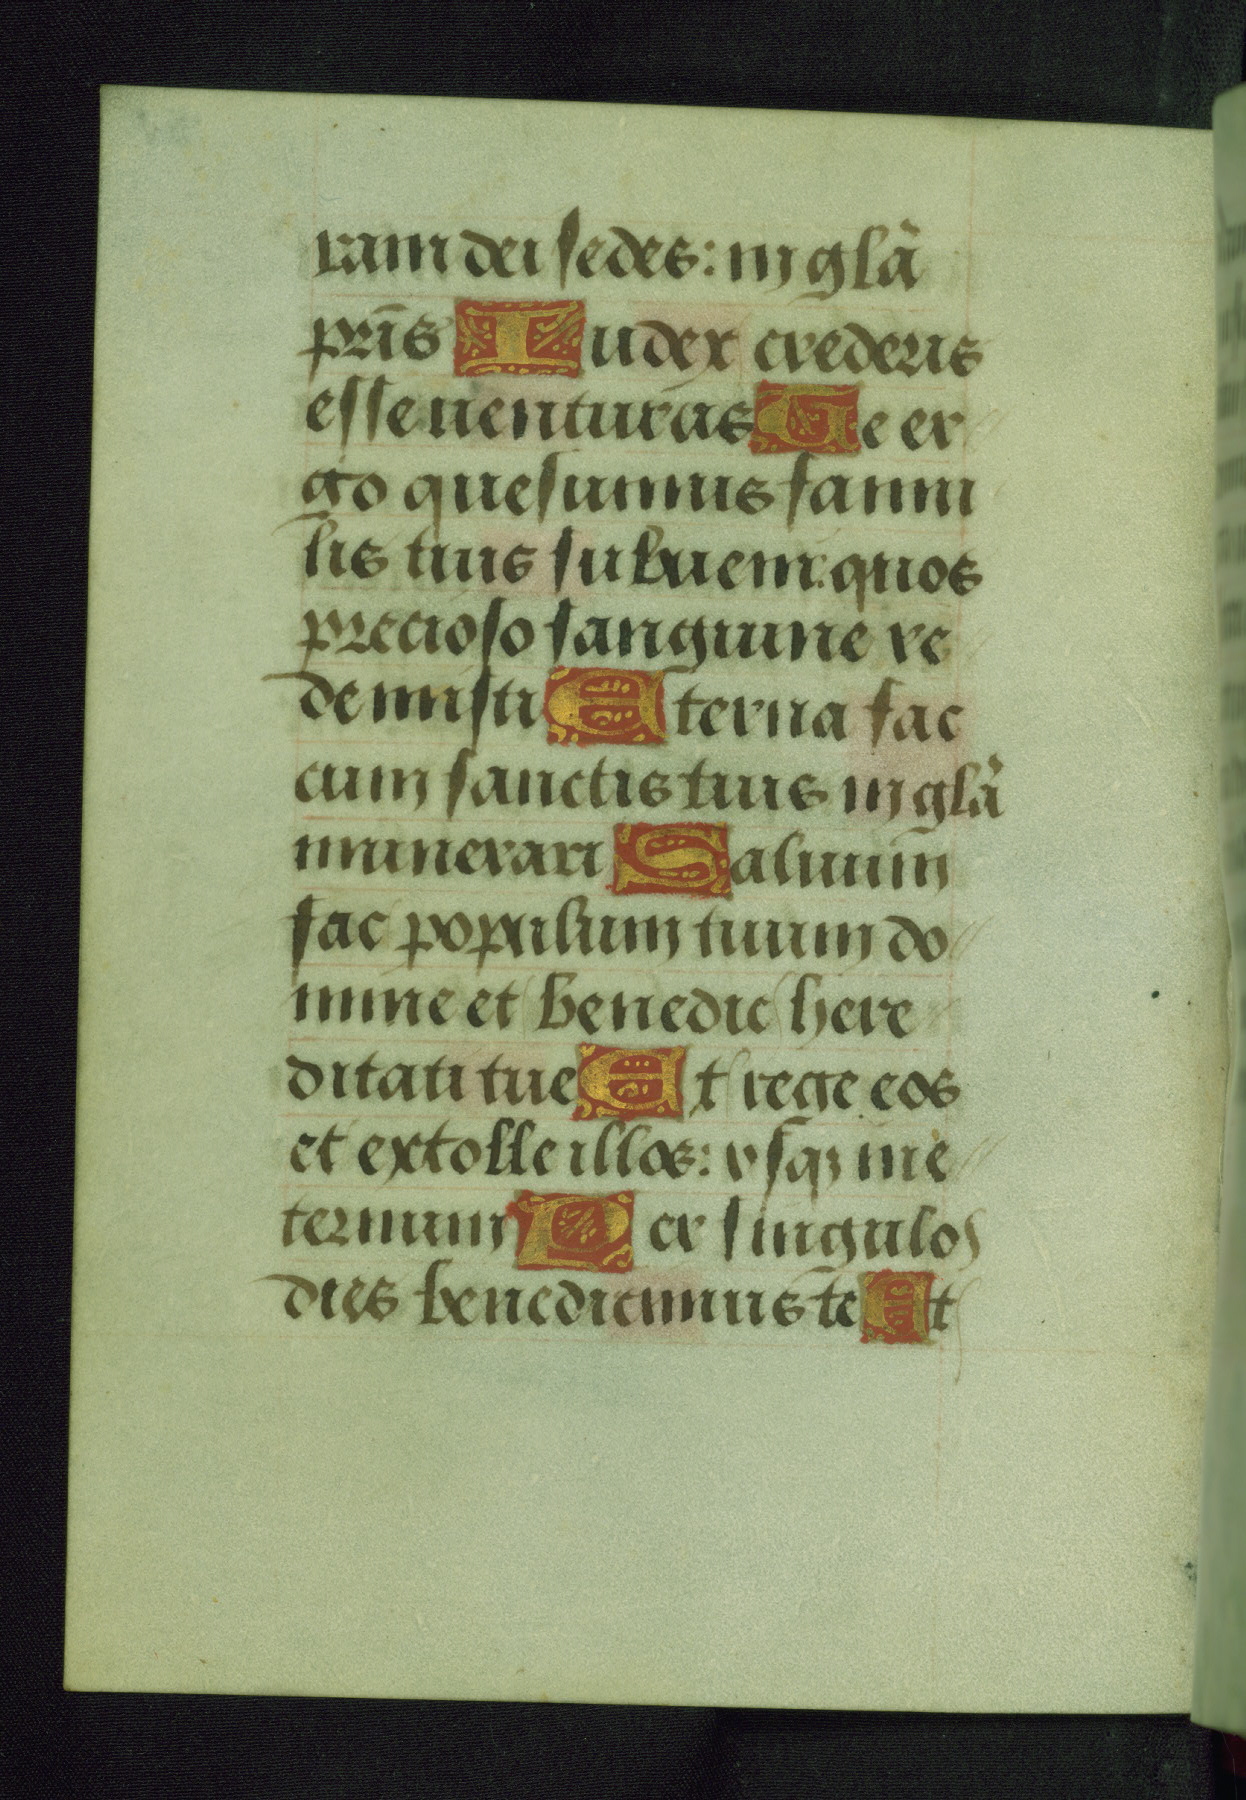 ram dei sedes: in glã
pris̄ Iudex crederis
esse uenturas Te er
go quesumus famu
lis tuis subueni: quos
precioso sanguine re
demisti Eterna fac
cum sanctis tuis in glã
munerari Saluum
fac populum tuum do
mine et benedic here
ditati tue Et rege eos
et extolle illos: vsqꝫ in e
ternum Per singulos
dies benedicimus te Et